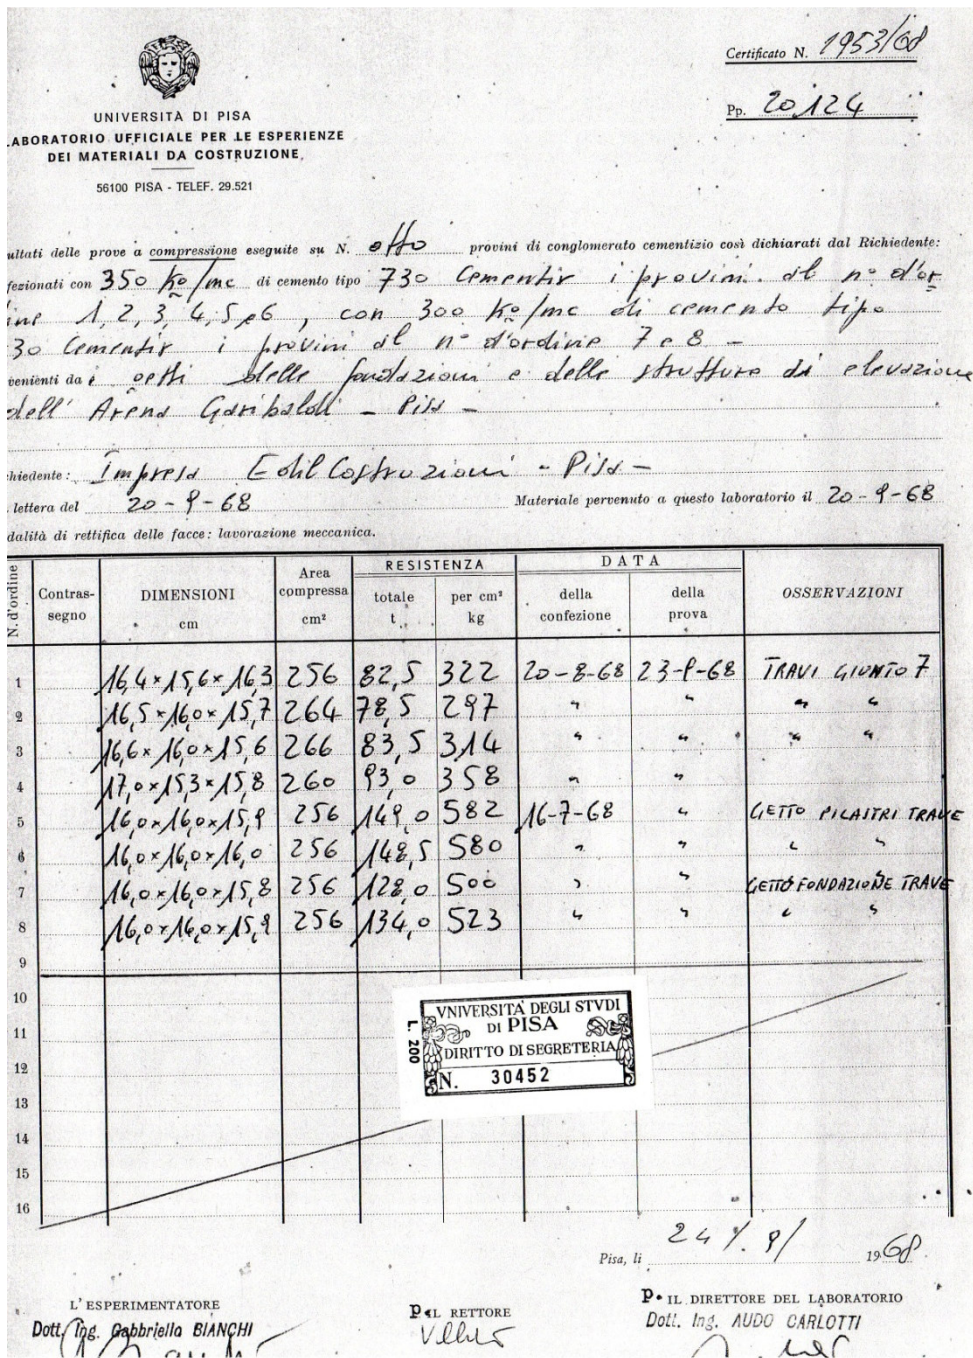 Certificato N. 1953/68
Pp. 20124
UNIVERSITÀ DI PISA
LABORATORIO UFFICIALE PER LE ESPERIENZE
DEI MATERIALI DA COSTRUZIONE
56100 PISA - TELEF. 29.521
ultati delle prove a compressione eseguite su N. otto provini di conglomerato cementizio così dichiarati dal Richiedente:
fezionati con 350 Kg/mc di cemento tipo 730 Cementir i provini di n° d'or
ine 1, 2, 3, 4, 5 e 6, con 300 Kg/mc di cemento tipo
30 Cementir i provini di n° d'ordine 7 e 8 -
venienti da i getti delle fondazioni e delle strutture di elevazione
dell' Arena Garibaldi - Pisa -
hiedente: Impresa Edil Costruzioni - Pisa -
lettera del 20-9-68 Materiale pervenuto a questo laboratorio il 20-9-68
dalità di rettifica delle facce: lavorazione meccanica.
N. d'ordine Contras-segno DIMENSIONI cm Area compressa cm² RESISTENZA totale t. per cm² kg DATA della confezione della prova OSSERVAZIONI
1 16,4×15,6×16,3 256 82,5 322 20-8-68 23-9-68 TRAVI GIUNTO 7
2 16,5×16,0×15,7 264 78,5 297 " " " "
3 16,6×16,0×15,6 266 83,5 314 " " " "
4 17,0×15,3×15,8 260 93,0 358 " "
5 16,0×16,0×15,9 256 149,0 582 16-7-68 " GETTO PILASTRI TRAVE
6 16,0×16,0×16,0 256 148,5 580 " " " "
7 16,0×16,0×15,8 256 128,0 500 " " GETTO FONDAZIONE TRAVE
8 16,0×16,0×15,9 256 134,0 523 " " " "
9
10
11
12
13
14
15
16
L. 200
VNIVERSITÀ DEGLI STVDI
DI PISA
DIRITTO DI SEGRETERIA
N. 30452
Pisa, li 24/9/ 1968
L'ESPERIMENTATORE
Dott. Ing. Gabbriella BIANCHI
P. IL RETTORE
P. IL DIRETTORE DEL LABORATORIO
Dott. Ing. AUDO CARLOTTI